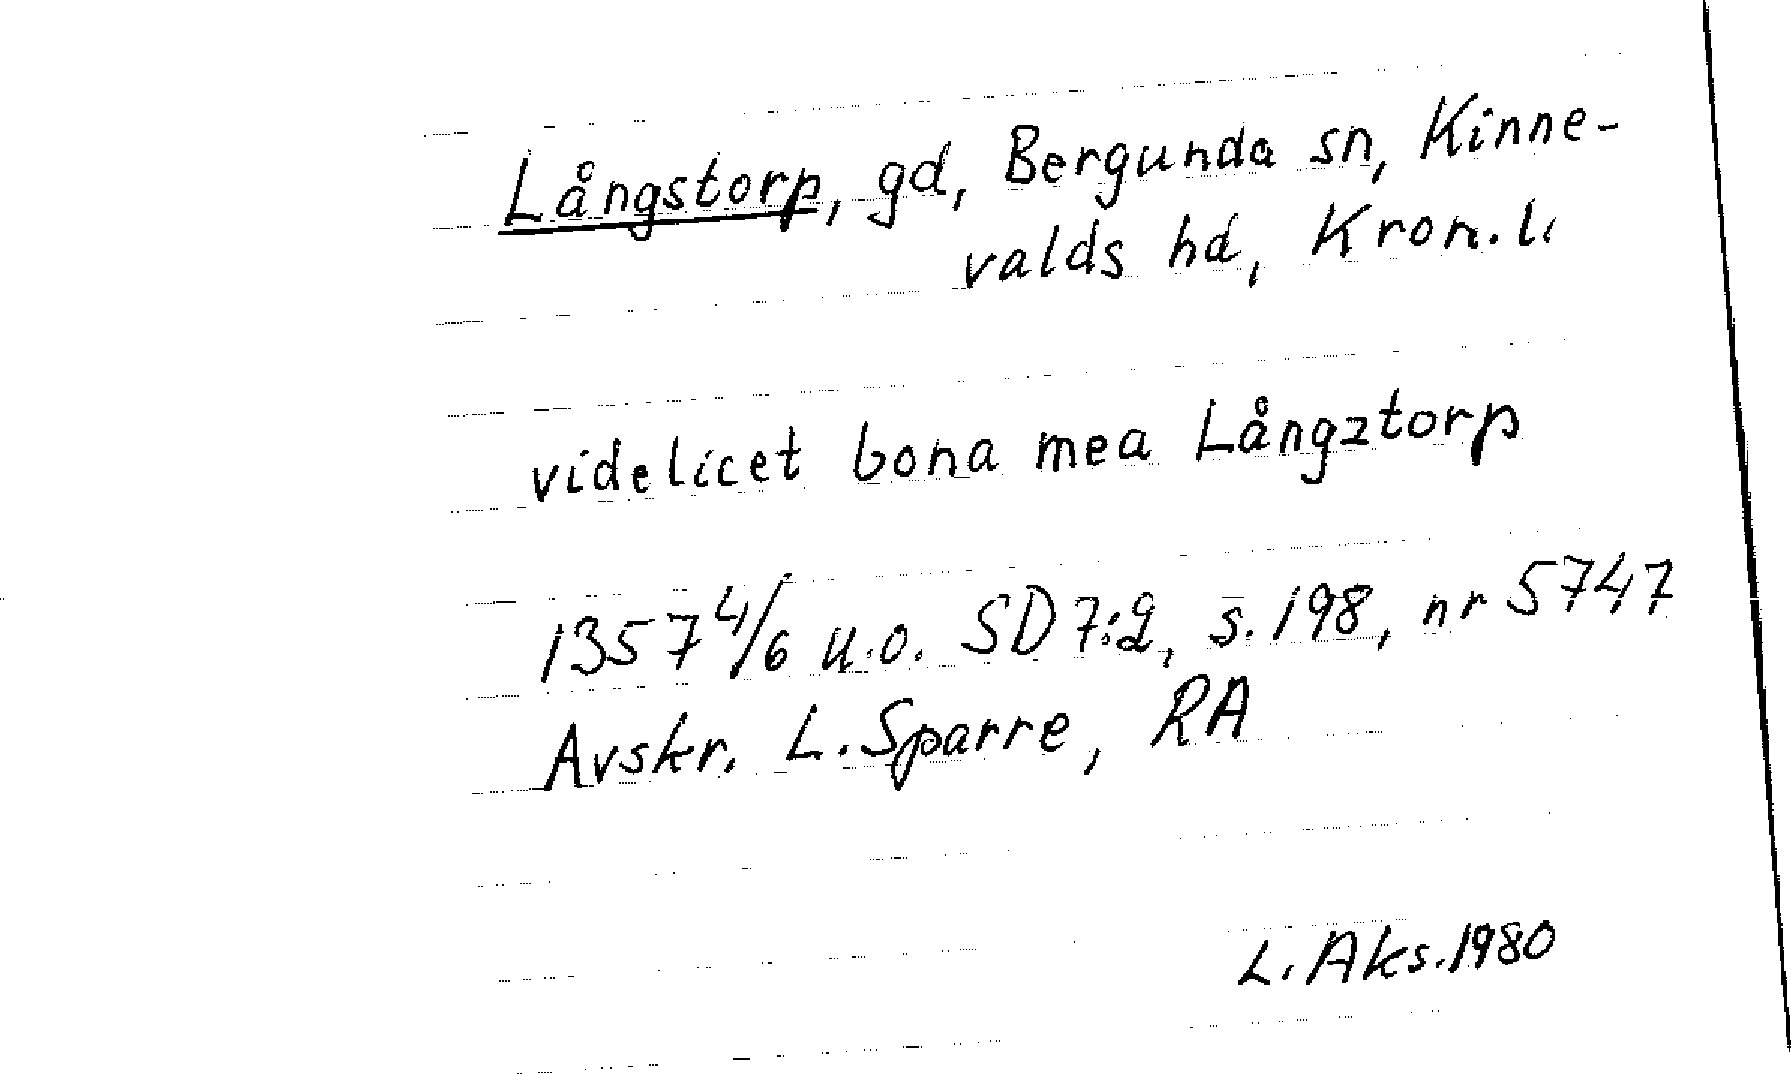 Långstorp, gd, Bergunda sn, Kinne-
valds hd, Kron. l.
videlicet bona mea Långztorp
1357 4/6 u.o. SD 7:2, s. 198, nr 5747
Avskr. L. Sparre, RA
L. Aks. 1980